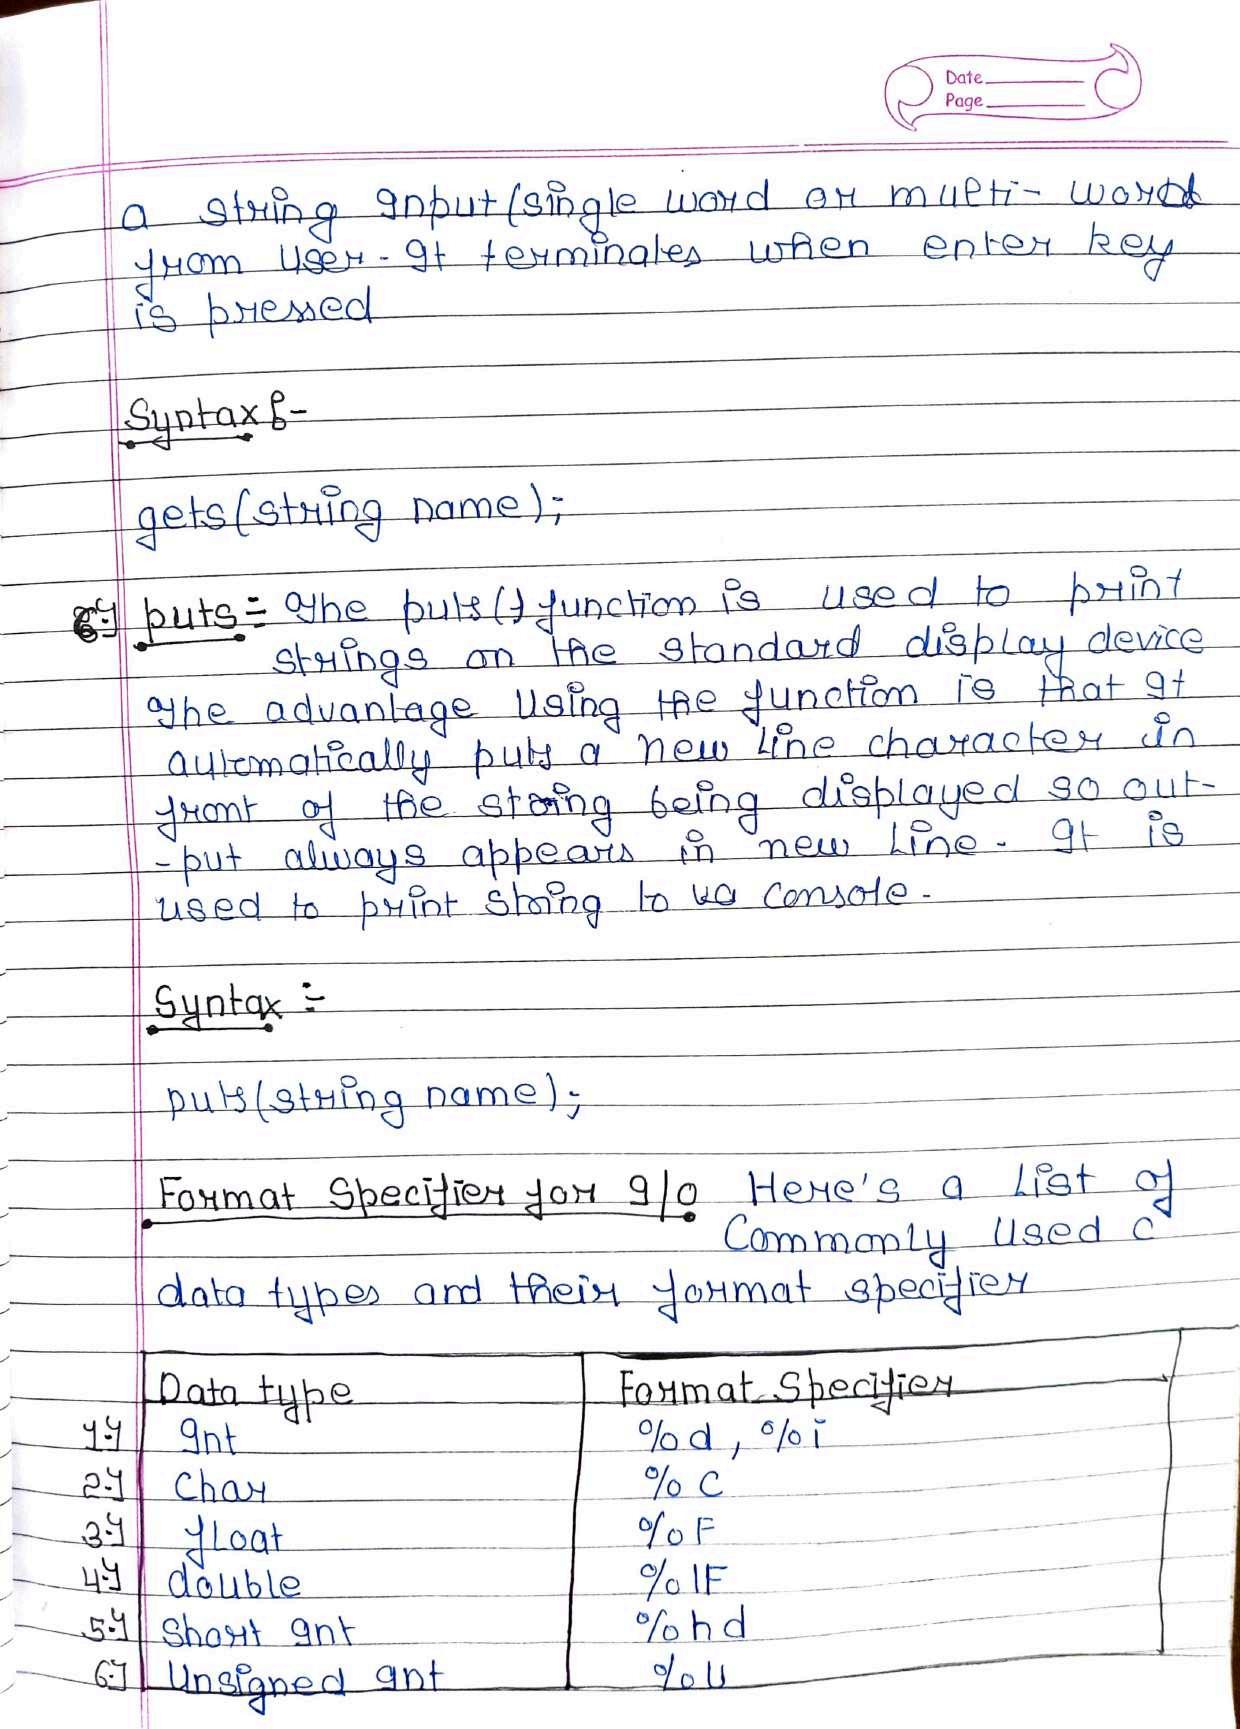 Date
Page
a string Input (single word or multi-word
from user. It terminates when enter key
is pressed
Syntax :-
gets(string name);
6.) puts :- The puts() function is used to print
strings on the standard display device
The advantage using the function is that It
automatically puts a new line character in
front of the string being displayed so out-
-put always appears in new line. It is
used to print string to console.
Syntax :-
puts(string name);
Format Specifier for I/O Here's a List of
Commonly Used C
data types and their format specifier
Data type Format Specifier
1.) Int %d, %i
2.) Char %C
3.) float %F
4.) double %lF
5.) Short Int %hd
6.) Unsigned Int %U